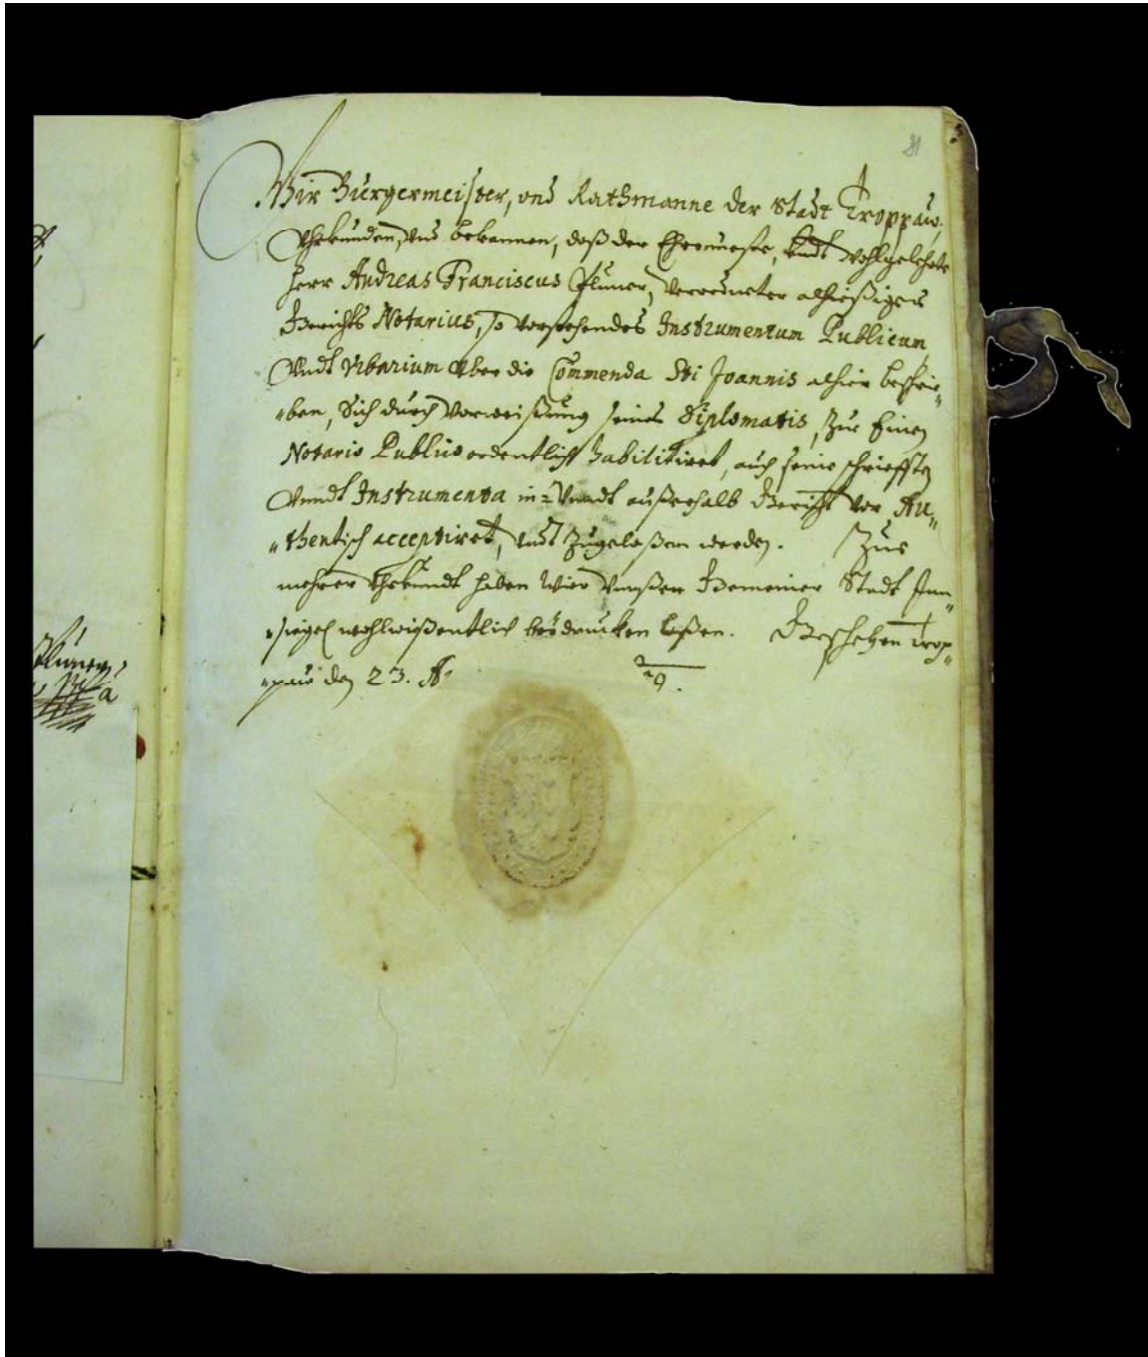 81
Wir Burgermeister, und Rathmanne der Stadt Troppaw.
Uhrkunden, und bekennen, daß der Ehrnveste, undt Wohlgelehrte
Herr Andreas Franciscus Pluner, Verordneter alhießiger
Gerichts Notarius, so vorstehendes Instrumentum Publicum
Undt Urbarium über die Commenda Sti Joannis alhier beschrie„
„ben, Sich durch Vorweißung seines Diplomatis, Zur Einen
Notario Publico ordentlich habilitiret, auch seine schriefften
Undt Instrumenta in= Undt außerhalb Gericht vor Au„
„thentisch acceptiret, undt Zugelaßen werden. Zur
mehrer Uhrkundt haben Wier Unßer Gemeiner Stadt Inn„
„siegel wohlwißentlich beÿdrucken laßen. Geschehen Trop„
„pau den 23.
Pluner